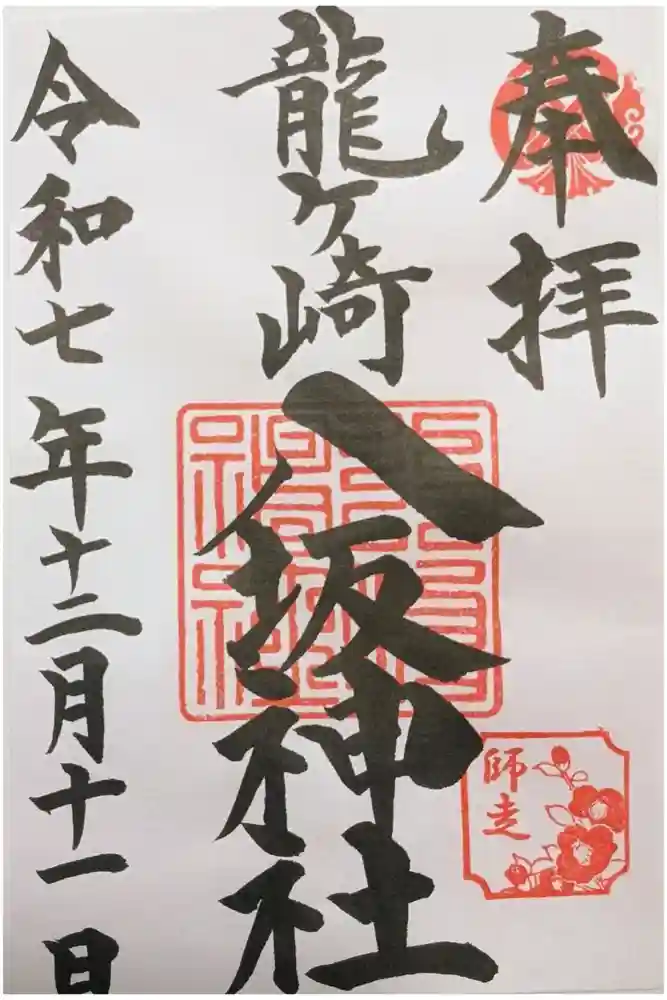 奉拝
龍ヶ崎
八坂神社
師走
令和七年十二月十一日